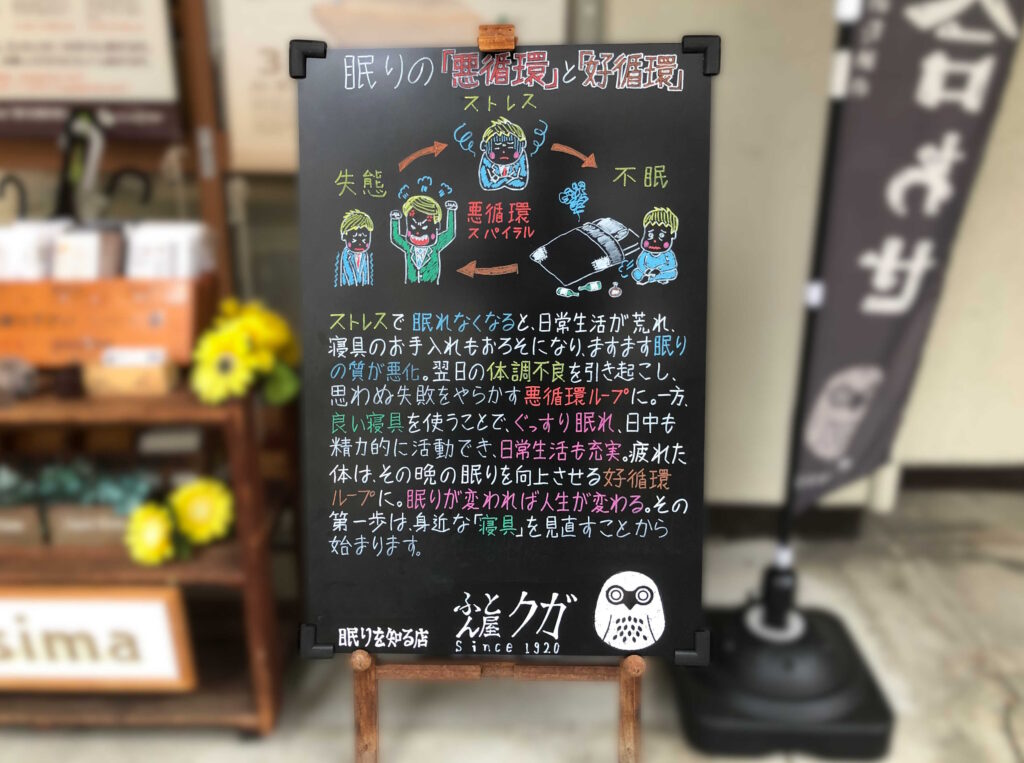 眠りの「悪循環」と「好循環」
ストレス
失態
不眠
悪循環
スパイラル
ストレスで眠れなくなると、日常生活が荒れ、
寝具のお手入れもおろそになり、ますます眠り
の質が悪化。翌日の体調不良を引き起こし、
思わぬ失敗をやらかす悪循環ループに。一方、
良い寝具を使うことで、ぐっすり眠れ、日中も
精力的に活動でき、日常生活も充実。疲れた
体は、その晩の眠りを向上させる好循環
ループに。眠りが変われば人生が変わる。その
第一歩は、身近な「寝具」を見直すことから
始まります。
眠りを知る店
ふとん屋クガ
Since 1920
sima
わせ